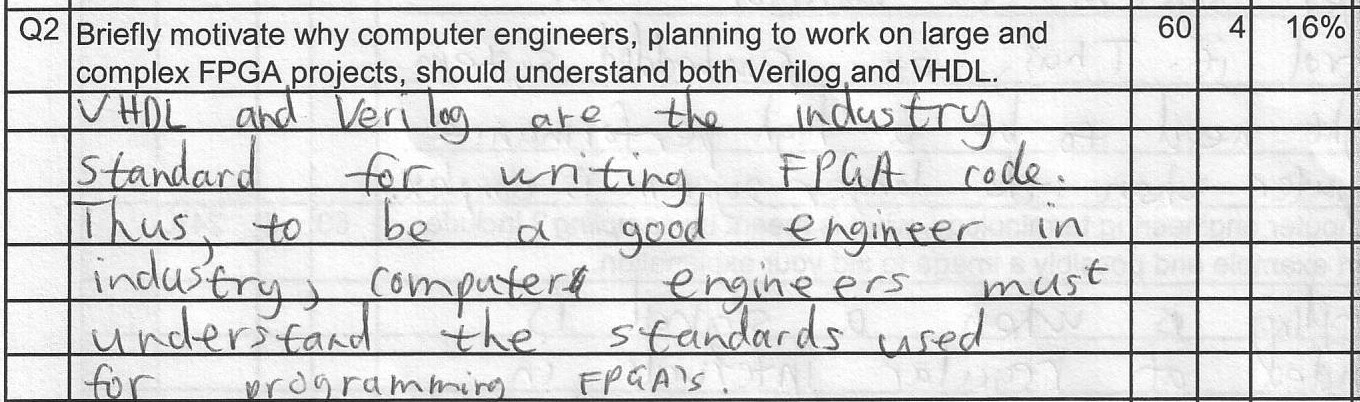 Q2 Briefly motivate why computer engineers, planning to work on large and 60 4 16%
complex FPGA projects, should understand both Verilog and VHDL.
VHDL and Verilog are the industry
standard for writing FPGA code.
Thus, to be a good engineer in
industry, computer engineers must
understand the standards used
for programming FPGA's.